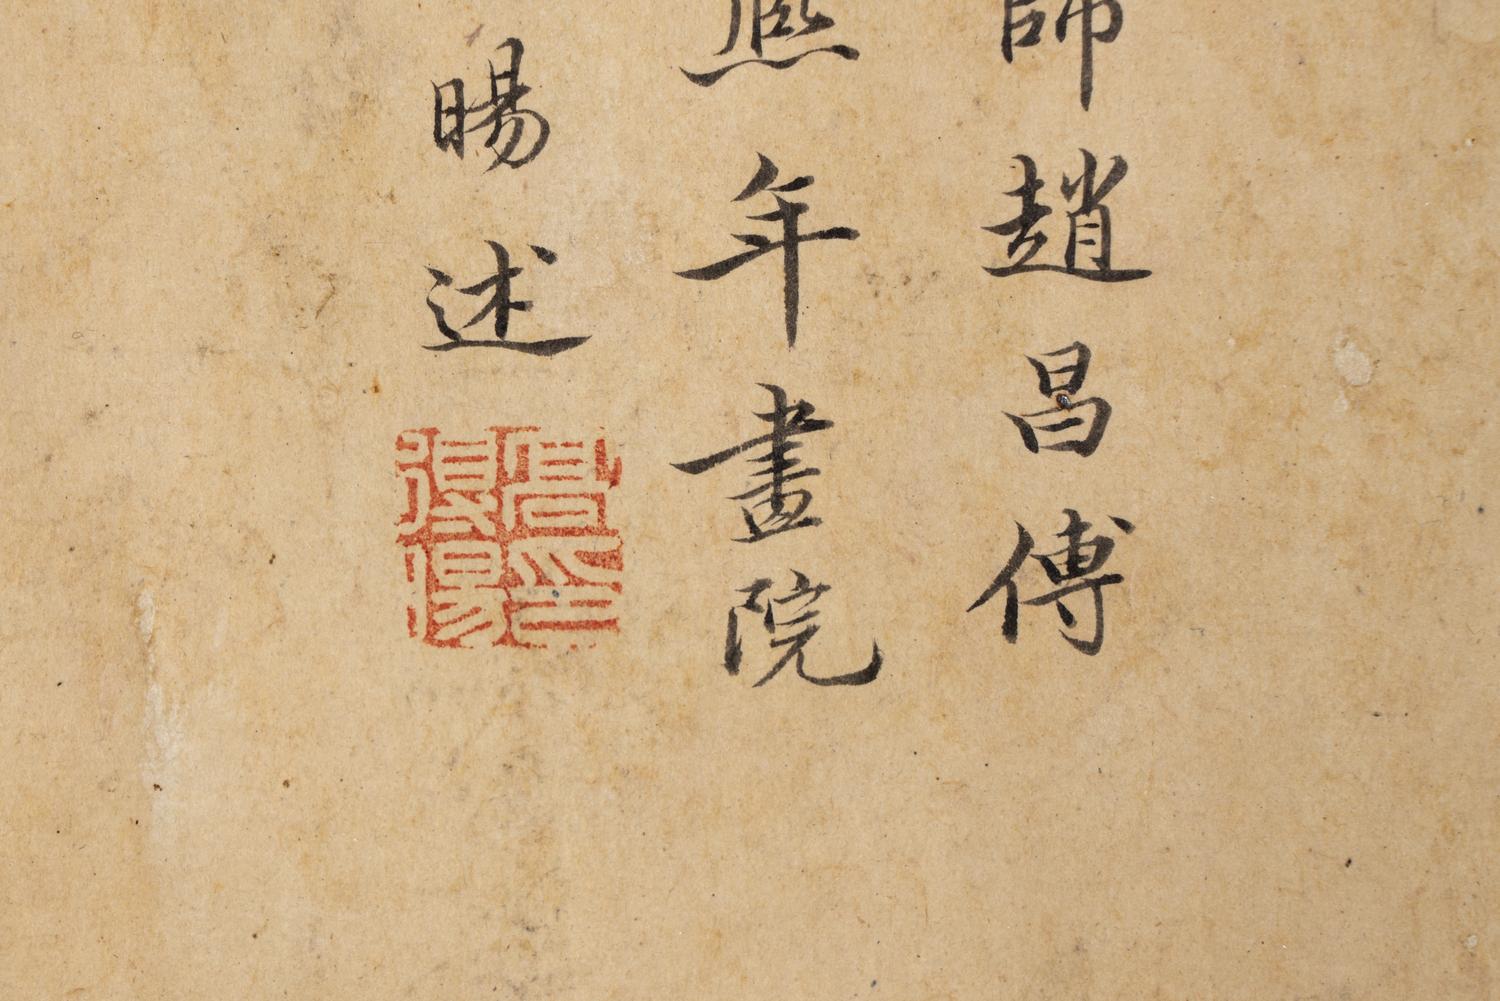 師趙昌傅
熈年畫院
暘述